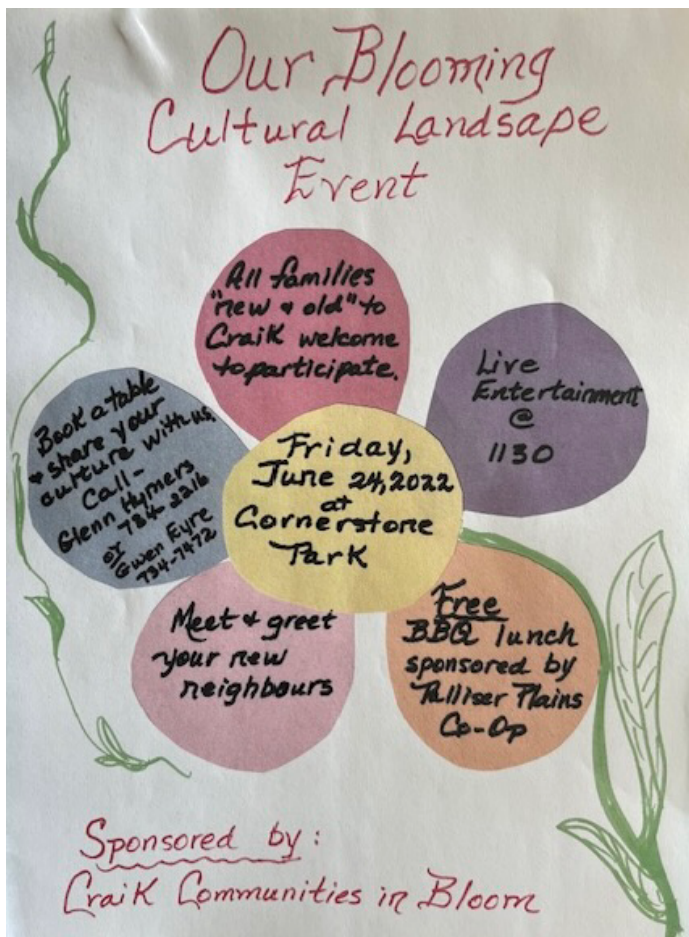 Our Blooming
Cultural Landsape
Event
All families
"new & old" to
Craik welcome
to participate.
Live
Entertainment
@
1130
Book a table
& share your
culture with us.
Call-
Glenn Hymers
734-2216
or
Gwen Eyre
734-7472
Friday,
June 24, 2022
at
Cornerstone
Park
Meet & greet
your new
neighbours
Free
BBQ lunch
sponsored by
Palliser Plains
Co-Op
Sponsored by:
Craik Communities in Bloom